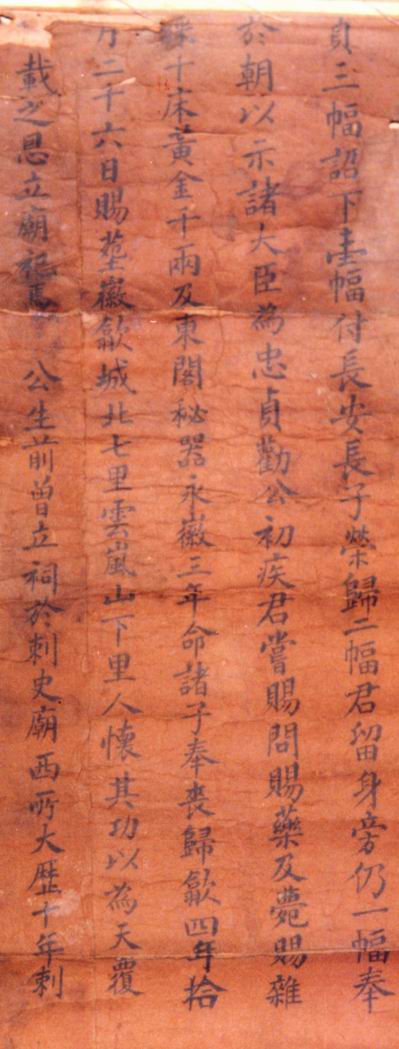 貞三幅詔下壹幅付長安長子榮歸二幅君留身旁仍一幅奉
於朝以示諸大臣為忠貞勸公初疾君嘗賜問賜藥及薨賜雜
綵十床黃金十兩及東閣秘器永徽三年命諸子奉喪歸歙四年拾
月二十六日賜塟徽歙城北七里雲嵐山下里人懷其功以為天覆
載之恩立廟祀焉 公生前曾立祠於刺史廟西所大歷十年刺